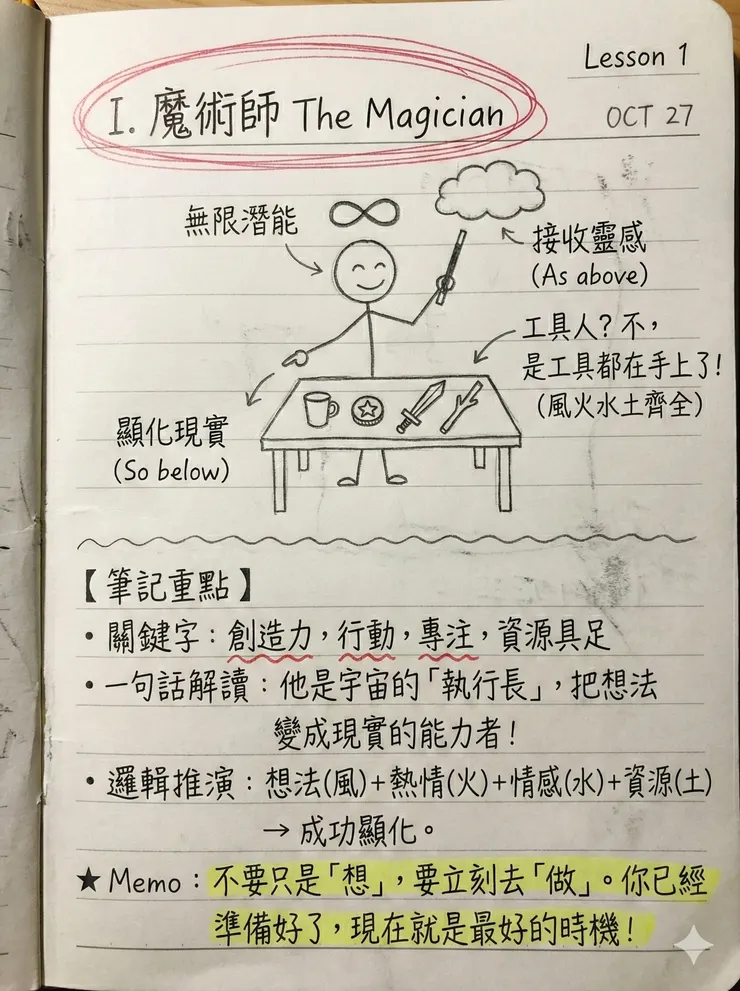 Lesson 1
I. 魔術師 The Magician
OCT 27
無限潛能
接收靈感
(As above)
工具人?不,
是工具都在手上了!
(風火水土齊全)
顯化現實
(So below)
【筆記重點】
• 關鍵字:創造力,行動,專注,資源具足
• 一句話解讀:他是宇宙的「執行長」,把想法
變成現實的能力者!
• 邏輯推演:想法(風)+熱情(火)+情感(水)+資源(土)
→ 成功顯化。
★ Memo:不要只是「想」,要立刻去「做」。你已經
準備好了,現在就是最好的時機!